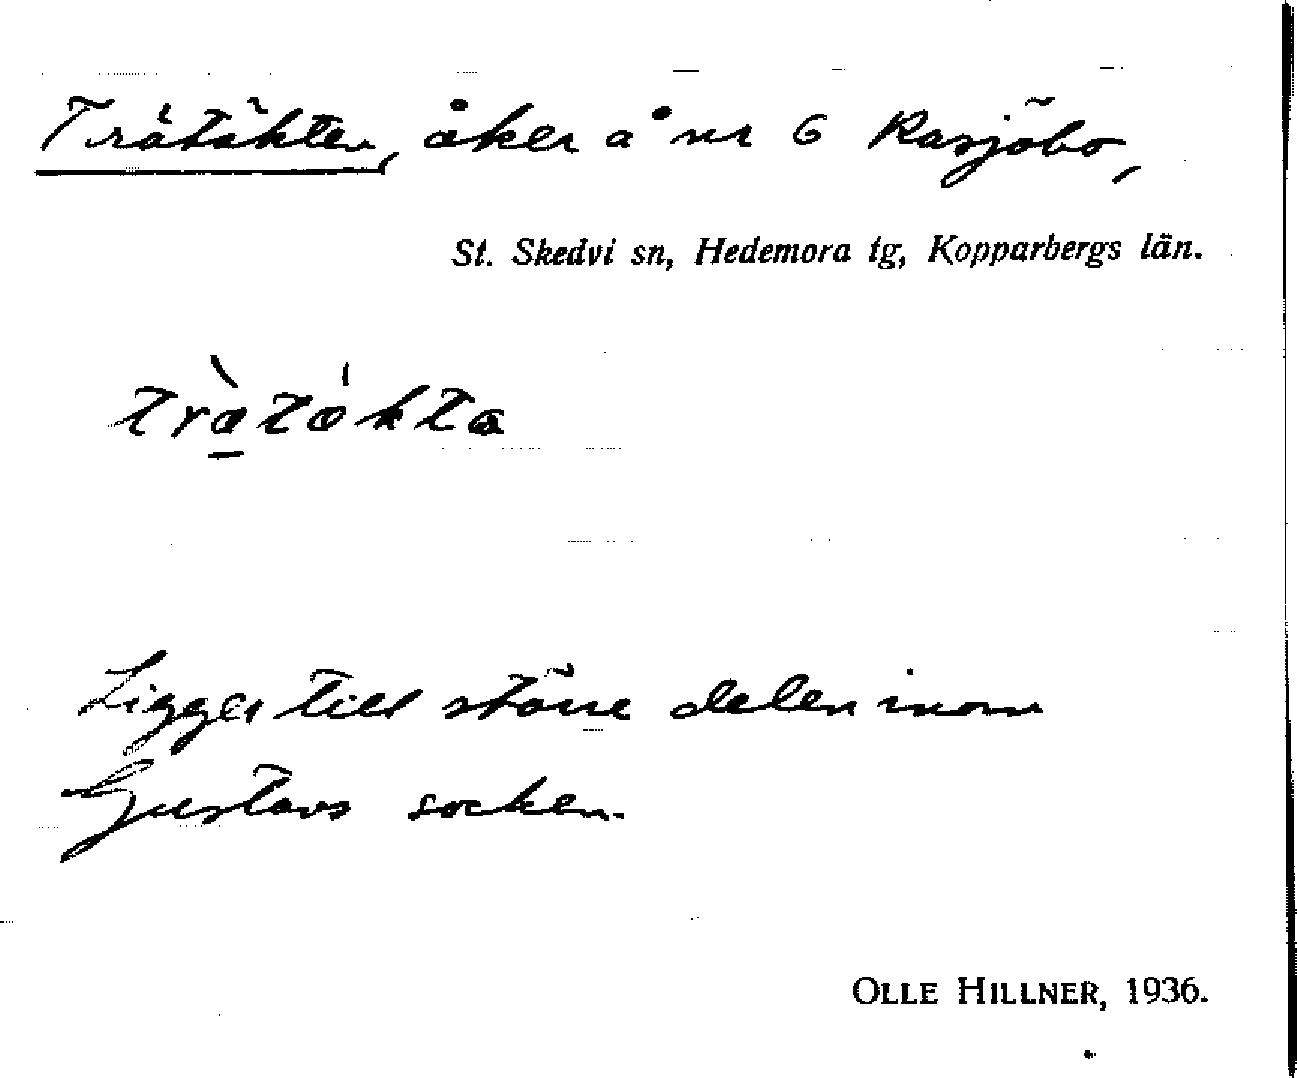 Trätäkten, åker å nr 6 Rasjöbo,
St. Skedvi sn, Hedemora tg, Kopparbergs län.
Ligger till större delen inom
Gustavs socken.
OLLE HILLNER, 1936.